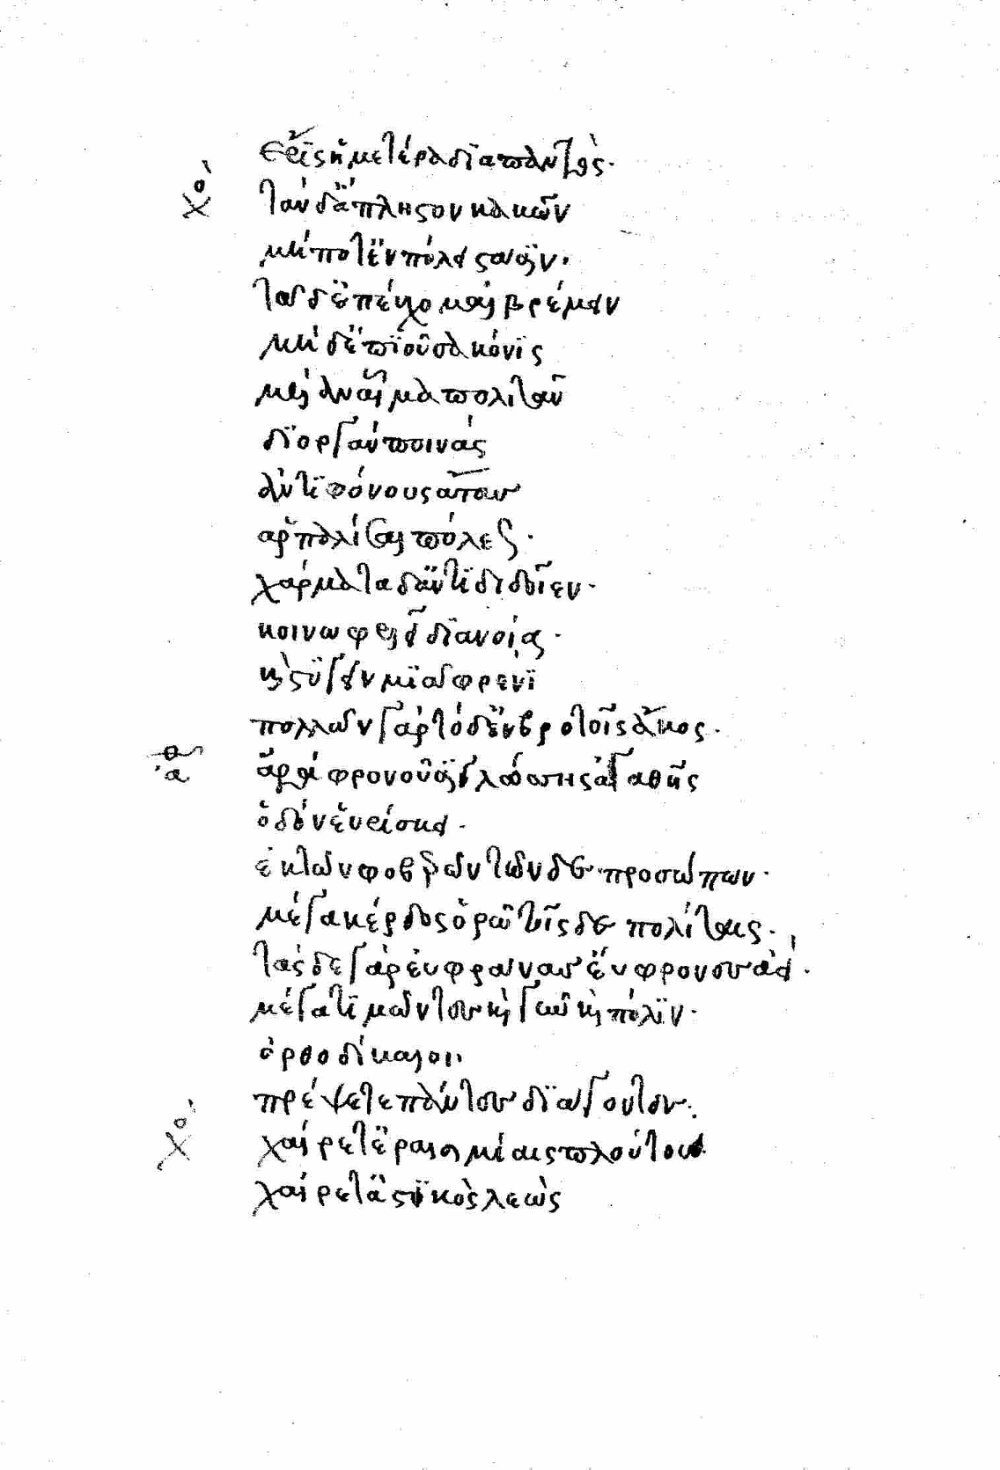 ἔρις ἡμετέρα διὰ παντός·
χο τὰν δ' ἄπληστον κακῶν
μήποτ' ἐν πόλει στάσιν·
τᾶιδ' ἐπεύχομαι βρέμειν
μηδὲ πιοῦσα κόνις
μέλαν αἷμα πολιτᾶν
δι' ὀργὰν ποινὰς
ἀντιφόνους ἄτας
ἁρπαλίσαι πόλεως·
χάρματα δ' ἀντιδιδοῖεν·
κοινωφελεῖ διανοίαι·
καὶ στυγεῖν μιᾶι φρενί
πολλῶν γὰρ τόδ' ἐν βροτοῖς ἄκος·
αθ ἆρα φρονοῦσι γλώσσης ἀγαθῆς
ὁδὸν εὑρίσκει·
ἐκ τῶν φοβερῶν τῶνδε προσώπων·
μέγα κέρδος ὁρῶ τοῖσδε πολίταις·
τάσδε γὰρ εὔφρονας εὔφρονες ἀεί·
μέγα τιμῶντες καὶ γῆν καὶ πόλιν·
ὀρθοδίκαιον
πρέψετε πάντες διάγοντες·
χο χαίρετ' ἐν αἰσιμίαις πλούτου·
χαίρετ' ἀστικὸς λεὼς